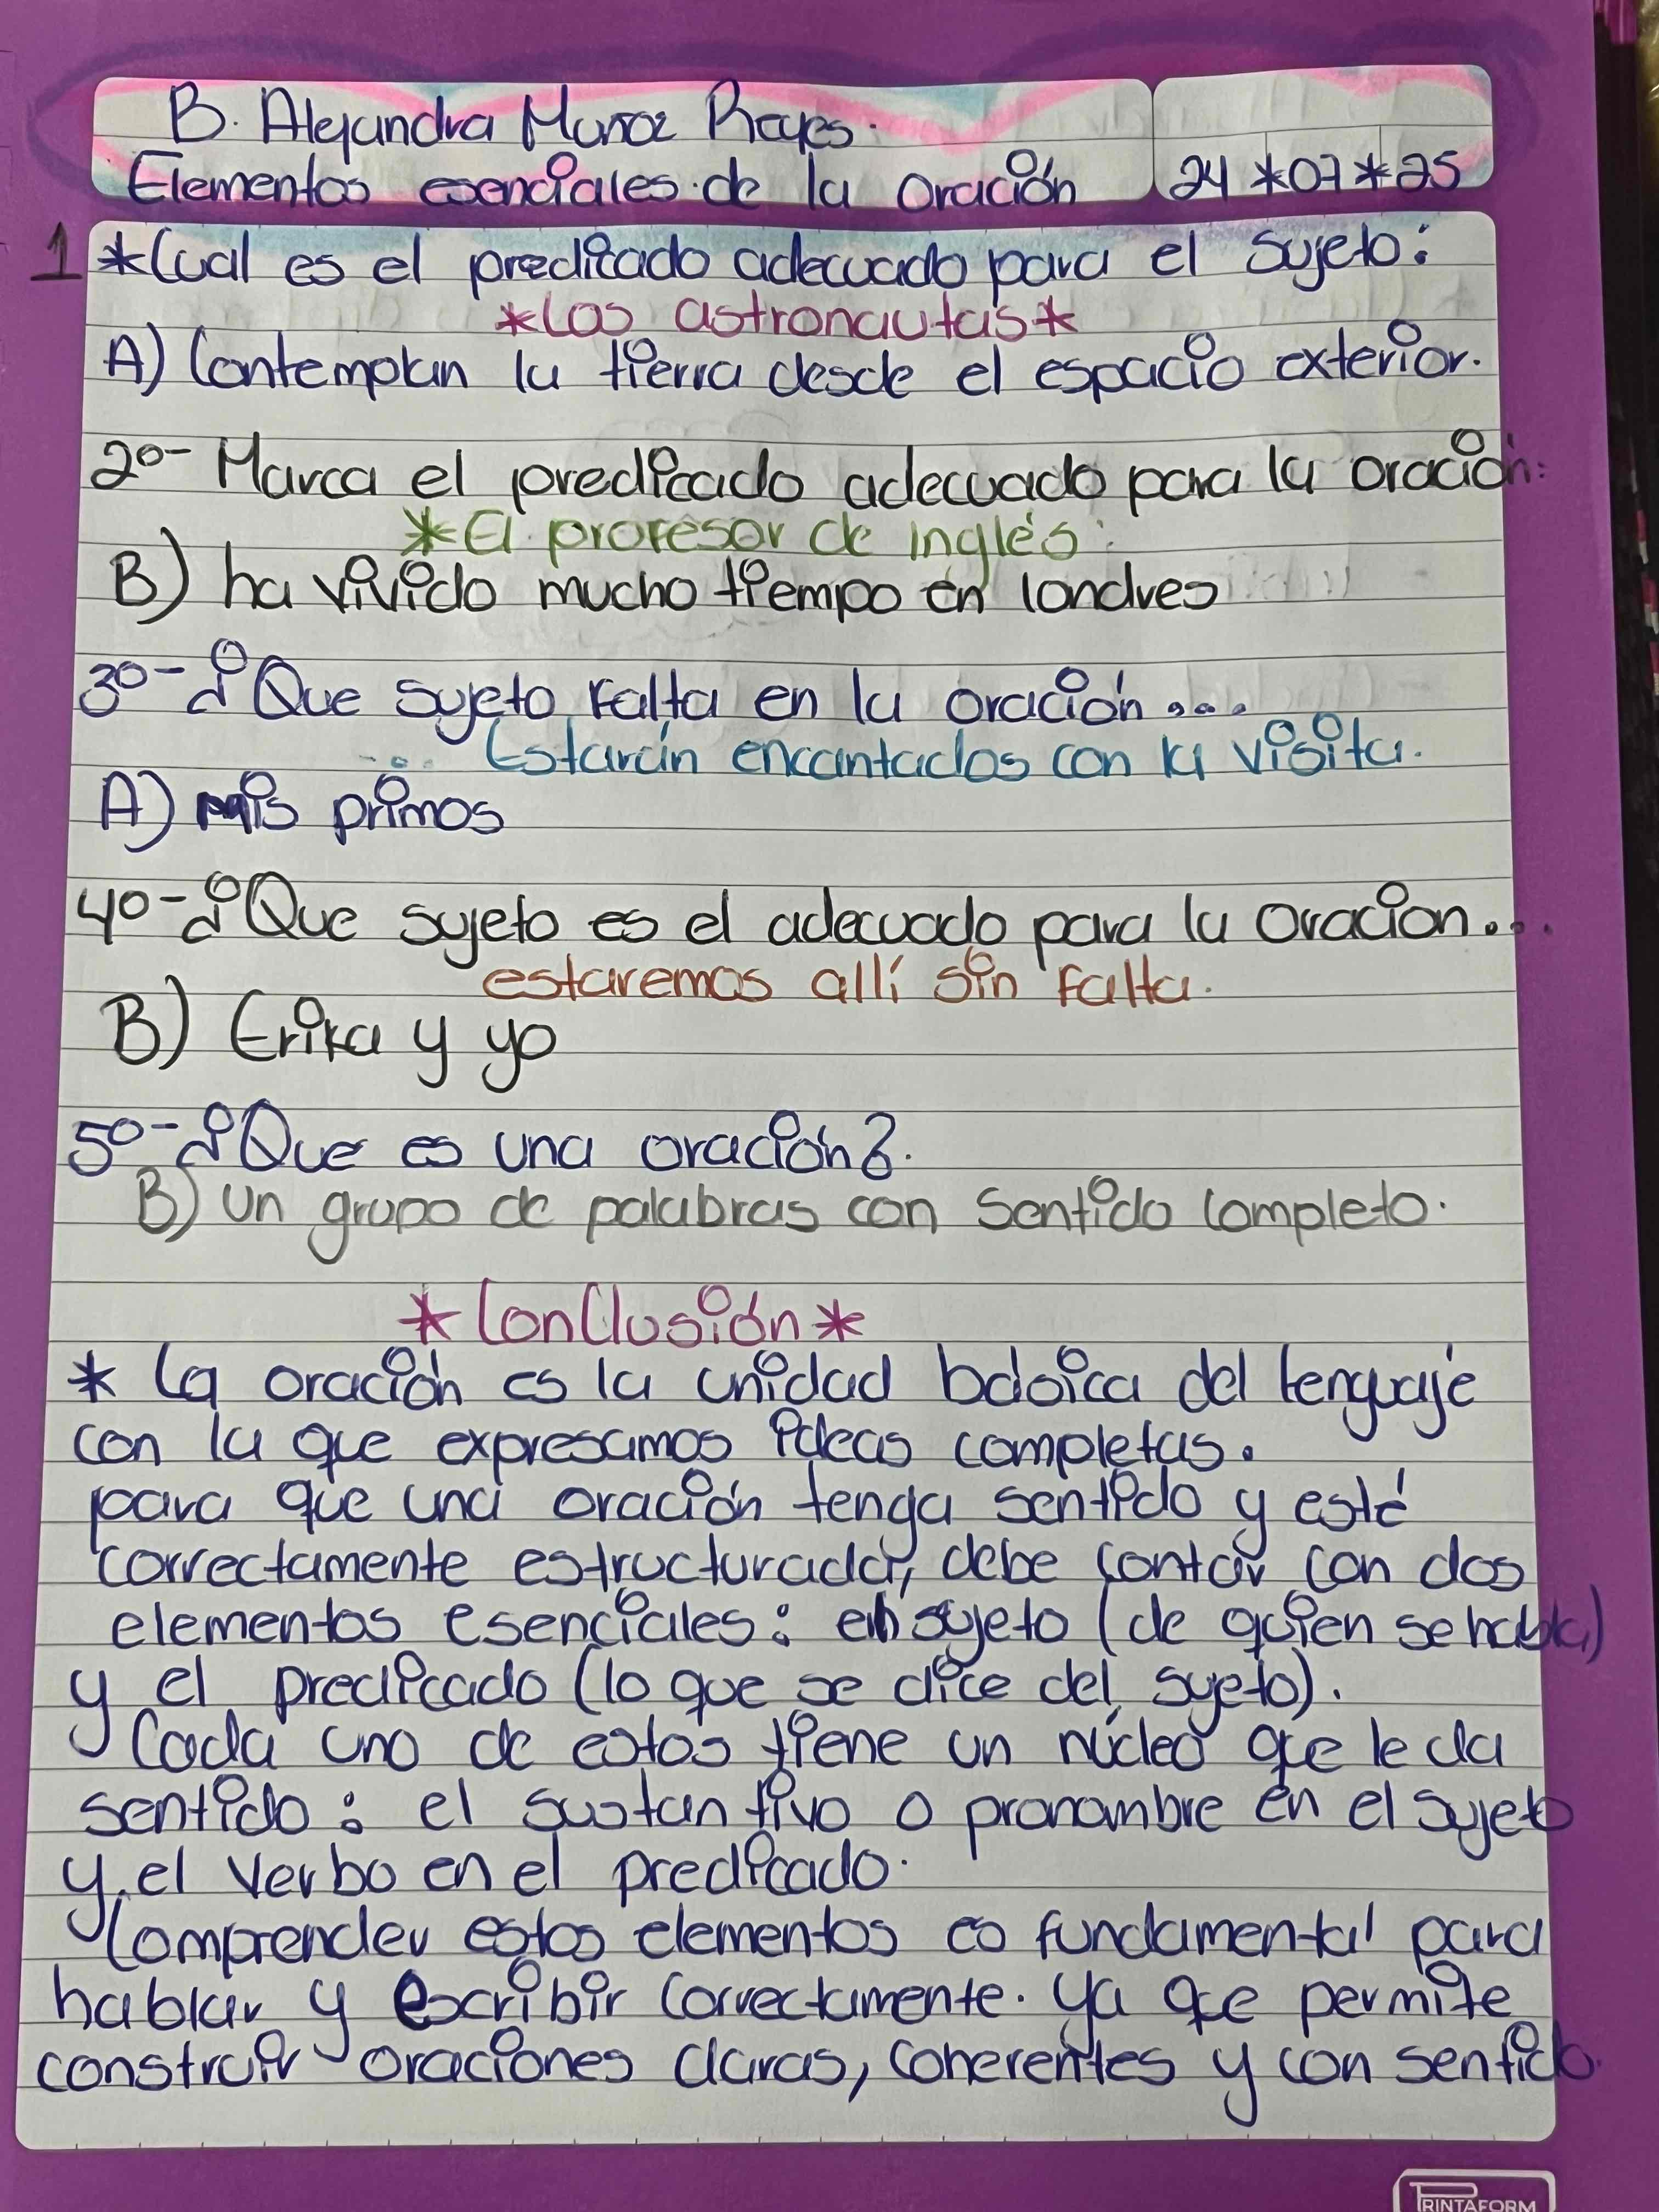 B. Alejandra Munoz Reyes.
Elementos esenciales de la oración
24*07*25
1 *Cual es el predicado adecuado para el sujeto:
*Los astronautas*
A) Contemplan la tierra desde el espacio exterior.
2º- Marca el predicado adecuado para la oración:
*El profesor de inglés.
B) ha vivido mucho tiempo en londres
3º- ¿Que sujeto falta en la oración...
... Estarán encantados con la visita.
A) mis primos
4º- ¿Que sujeto es el adecuado para la oracion...
estaremos allí sin falta.
B) Erika y yo
5º- ¿Que es una oración?.
B) Un grupo de palabras con sentido completo.
*Conclusión*
* La oración es la unidad básica del lenguaje
con la que expresamos ideas completas.
para que una oración tenga sentido y esté
correctamente estructurada, debe contar con dos
elementos esenciales: el sujeto (de quien se habla)
y el predicado (lo que se dice del sujeto).
Cada uno de estos tiene un núcleo que le da
sentido: el sustantivo o pronombre en el sujeto
y el verbo en el predicado.
Comprender estos elementos es fundamental para
hablar y escribir correctamente. ya que permite
construir oraciones claras, coherentes y con sentido.
PRINTAFORM